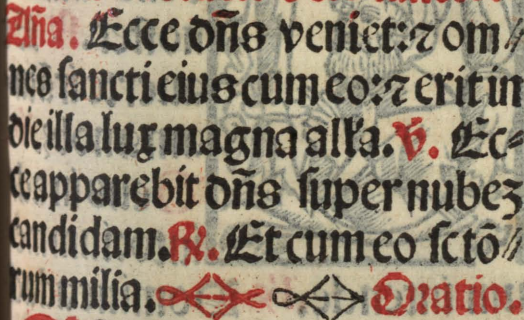 Aña. Ecce dñs veniet: ⁊ om//
nes sancti eius cum eo: ⁊ erit in
die illa lux magna alľa. ℣. Ec-
ce apparebit dñs super nubeʒ
candidam. ℟. Et cum eo sctõ//
rum milia. Oratio.